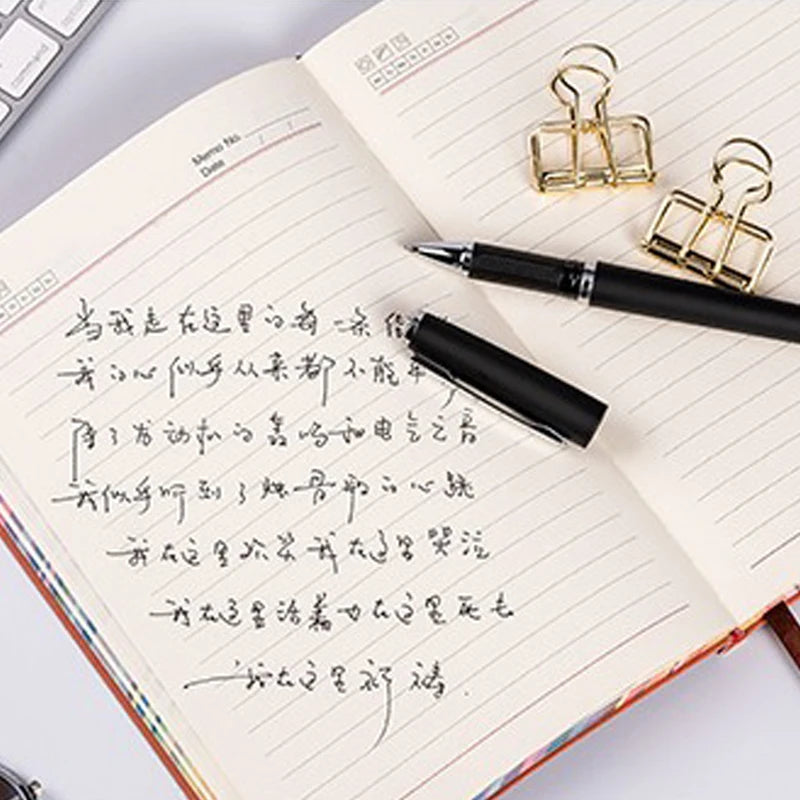 command
Memo No.
Date / /
当我走在这里的每一条街
我的心似乎从来都不能平
除了发动机的轰鸣和电气之音
我似乎听到了烛骨般的心跳
我在这里欢笑我在这里哭泣
我在这里活着也在这里死去
我在这里祈祷